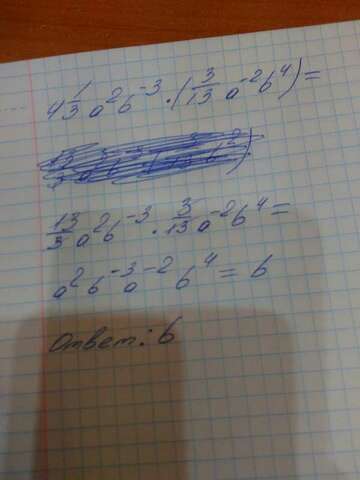 4 1/3 a²b⁻³ · (3/13 a⁻²b⁴) =
13/3 a²b⁻³ · 3/13 a⁻²b⁴ =
a² b⁻³a⁻² b⁴ = b
Ответ: b